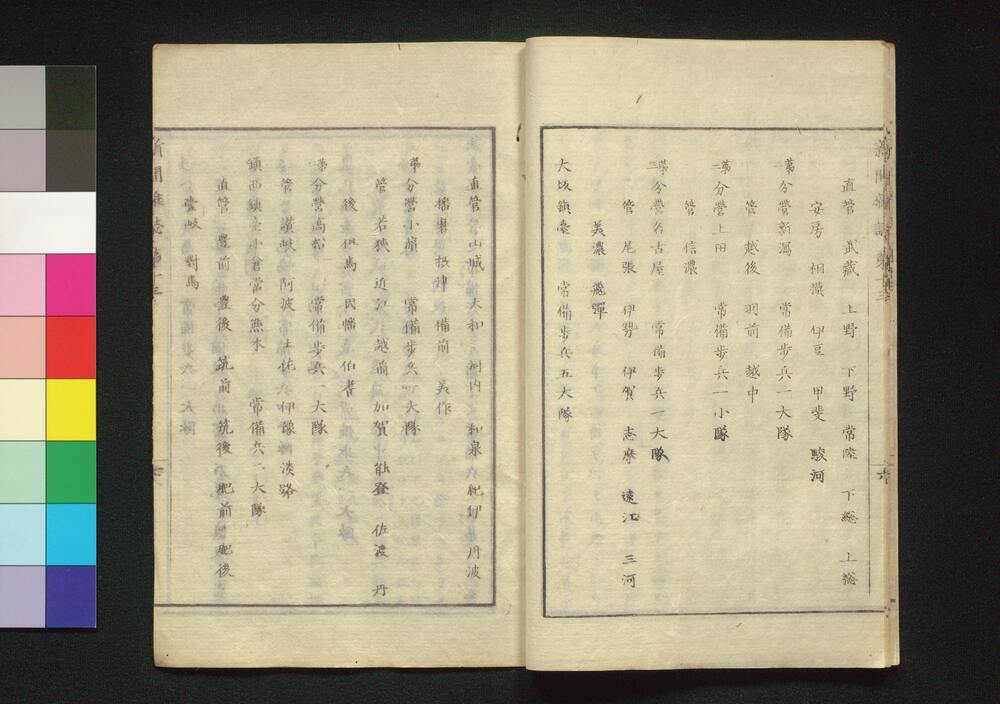 直管 武藏 上野 下野 常陸 下総 上総
安房 相摸 伊豆 甲斐 駿河
第一分營新潟 常備歩兵一大隊
管 越後 羽前 越中
第二分營上田 常備歩兵一小隊
管 信濃
第三分營名古屋 常備歩兵一大隊
管 尾張 伊勢 伊賀 志摩 遠江 三河
美濃 飛彈
大坂鎮臺 常備歩兵五大隊
六
直管 山城 大和 河内 和泉 紀伊 丹波
播磨 摂津 備前 美作
第一分營小濵 常備歩兵一大隊
管 若狹 近江 越前 加賀 能登 佐渡 丹
後 但馬 因幡 伯耆
第二分營高松 常備歩兵一大隊
管 讃岐 阿波 土佐 伊豫 淡路
鎮西鎮臺小倉當分熊本 常備兵二大隊
直管 豊前 豊後 筑前 筑後 肥前 肥後
壹岐 對馬
新聞雜誌 第十三
七